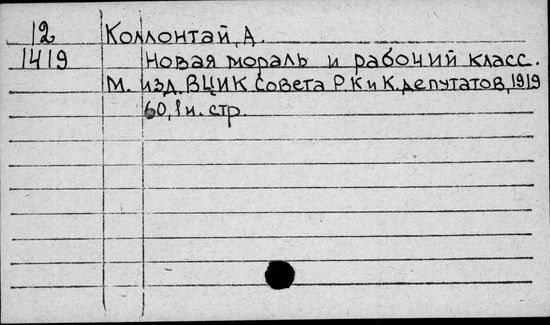 12 Коллонтай, А.
1419 Новая мораль и рабочий класс.
М. изд. ВЦИК Совета Р. К и К. депутатов, 1919
60, 1 н. стр.